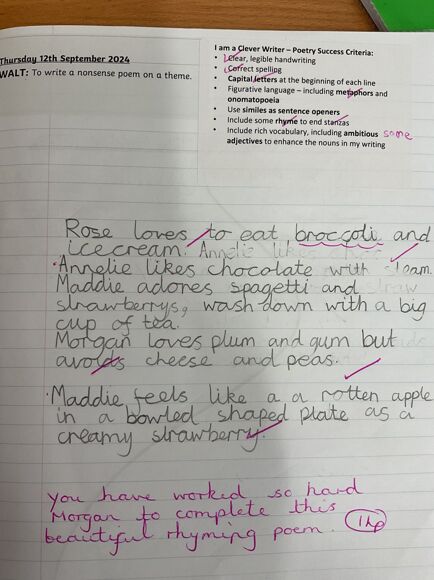 Thursday 12th September 2024
WALT: To write a nonsense poem on a theme.
I am a Clever Writer – Poetry Success Criteria:
• Clear, legible handwriting
• Correct spelling
• Capital letters at the beginning of each line
• Figurative language – including metaphors and
onomatopoeia
• Use similes as sentence openers
• Include some rhyme to end stanzas
• Include rich vocabulary, including ambitious some
adjectives to enhance the nouns in my writing
Rose loves to eat broccoli and
icecream. Annelie likes
Annelie likes chocolate with
Maddie adores spagetti and
strawberrys, wash down with a big
cup of tea.
Morgan loves plum and gum but
avoids cheese and peas.
Maddie feels like a a rotten apple
in a bowled shaped plate as a
creamy strawberry.
you have worked so hard
Morgan to complete this
beautiful rhyming poem. 1hp